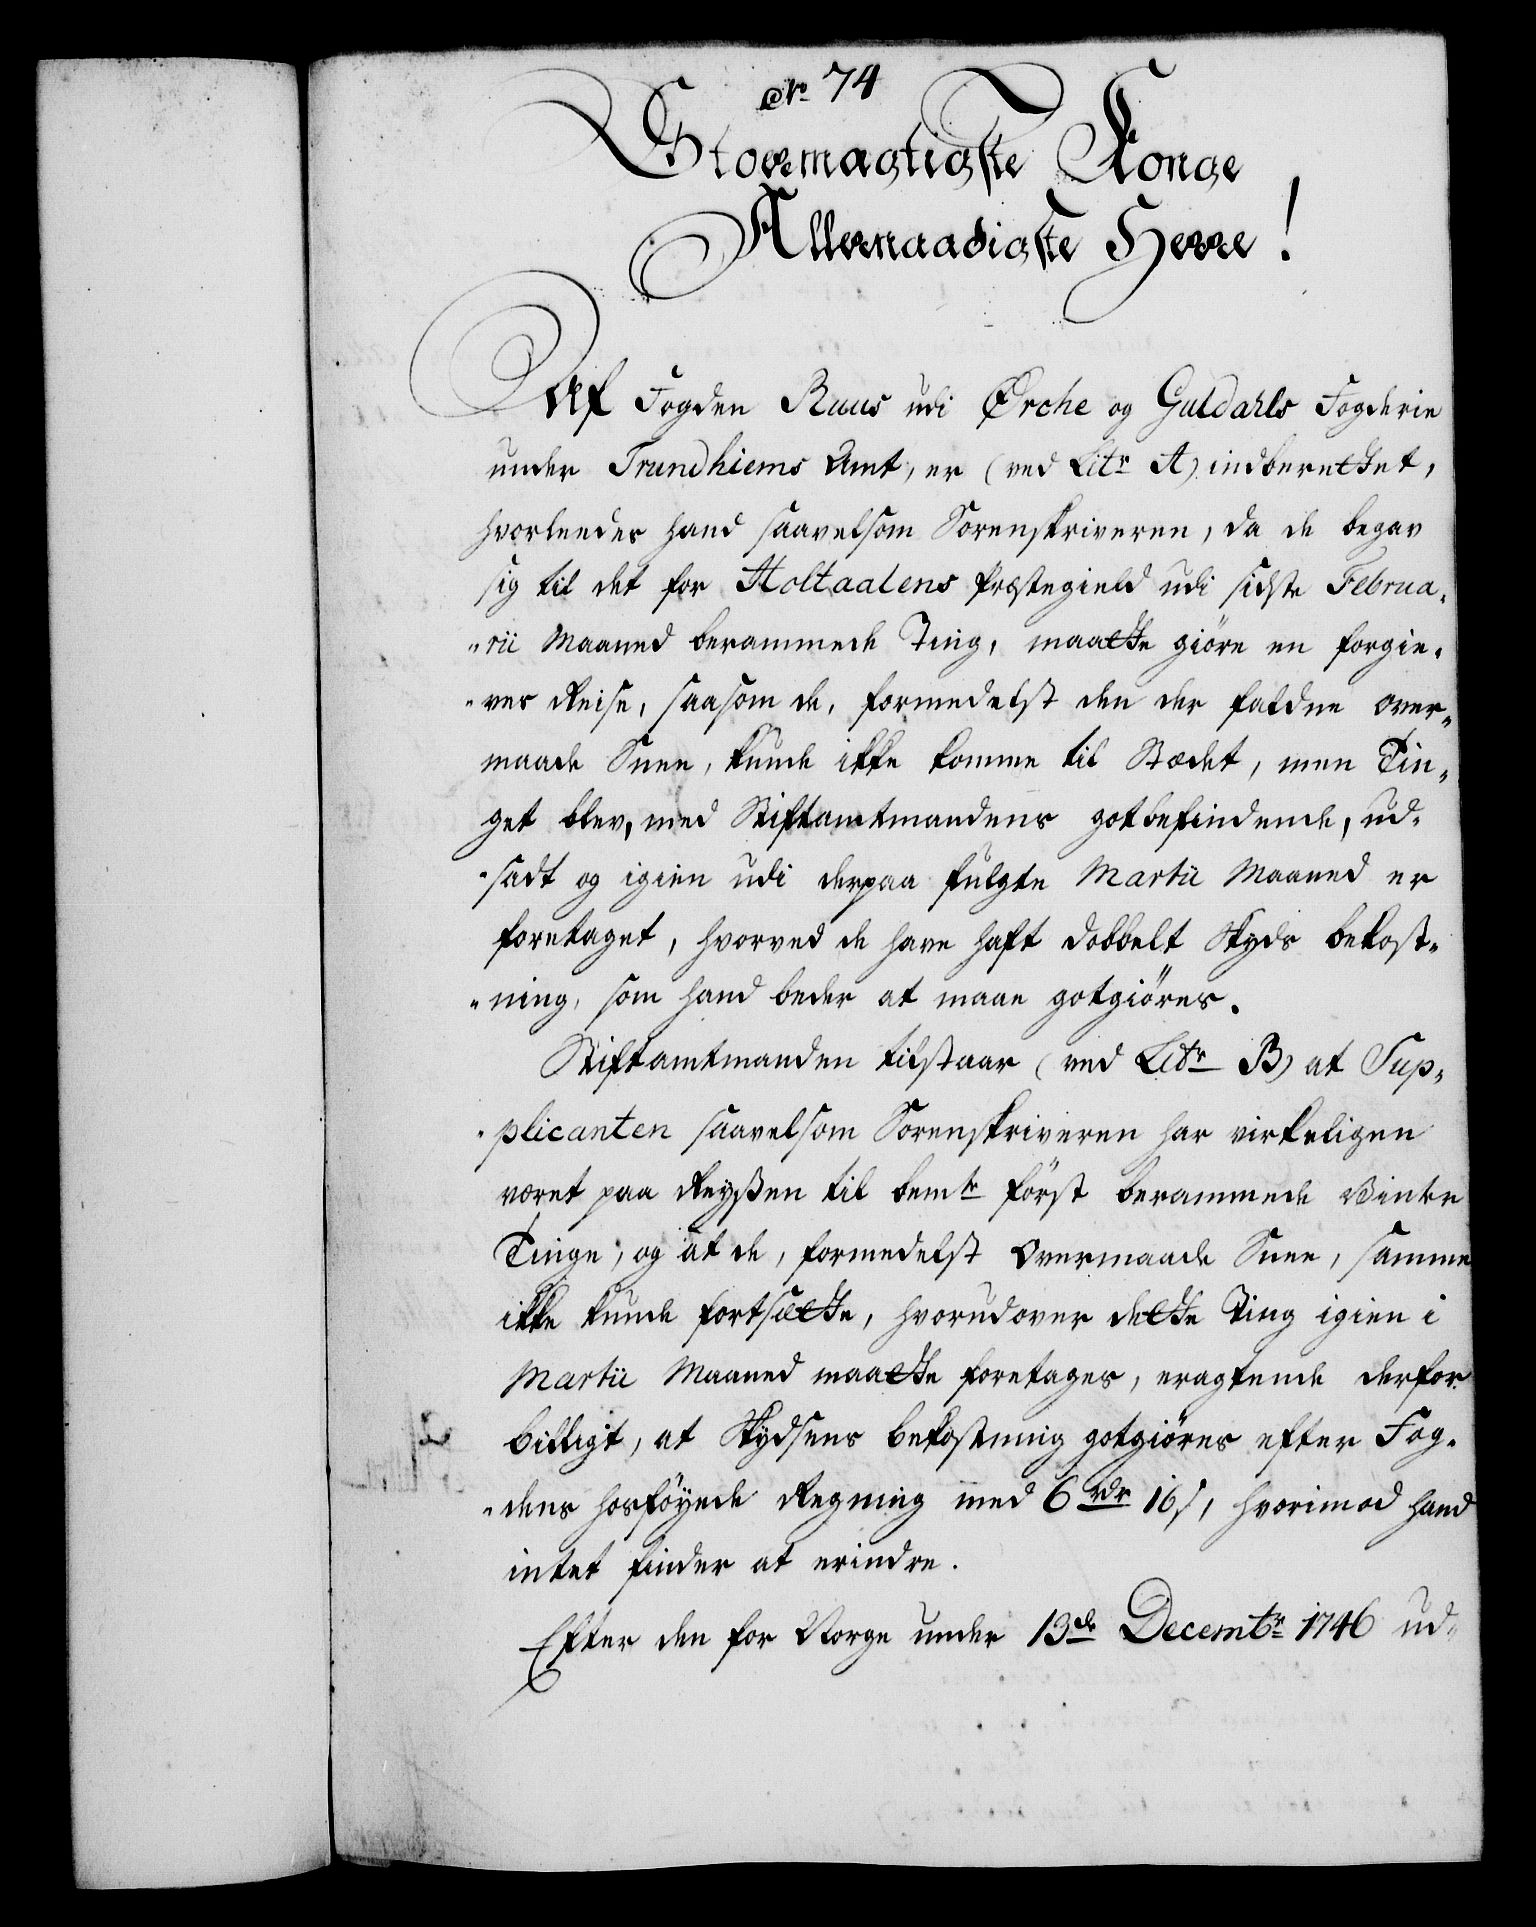 No 74
Stormægtigste Konge
Allernaadigste Herre!
Af Fogden Ruus udi Ørche og Guldahls Fogderie
under Trundhiems Amt, er (ved Litr A) indberettet,
hvorleedes hand saavelsom Sorenskriveren, da de begav
sig til det for Holtaalens Præstegield udi sidste Februa-
"rii Maaned berammede Ting, maatte giöre en forgie-
"ves Reise, saasom de, formedelst den der faldne over-
maade Snee, kunde ikke komme til Stædet, men Tin-
get blev, med Stiftamtmandens gotbefindende, ud-
"sadt og igien udi derpaa fulgte Martii Maaned er
foretaget, hvorved de have haft dobbelt Skyds bekost-
"ning, som hand beder at maae gotgiöres.
Stiftamtmanden tilstaar (ved Litr B) at Sup-
"plicanten saavelsom Sorenskriveren har virkeligen
været paa Reyßen til bemte först berammede Winter
Tinge, og at de, formedelst Overmaade Snee, samme
ikke kunde fortsætte, hvorudover dette Ting igien i
Martii Maaned maatte foretages, eragtende derfor
billigt, at Skydsens bekostning gotgiöres efter Fog-
"dens hosföyede Regning med 6 rdr 16 s, hvorimod hand
intet finder at erindre.
Efter den for Norge under 13de Decembr 1746 ud-